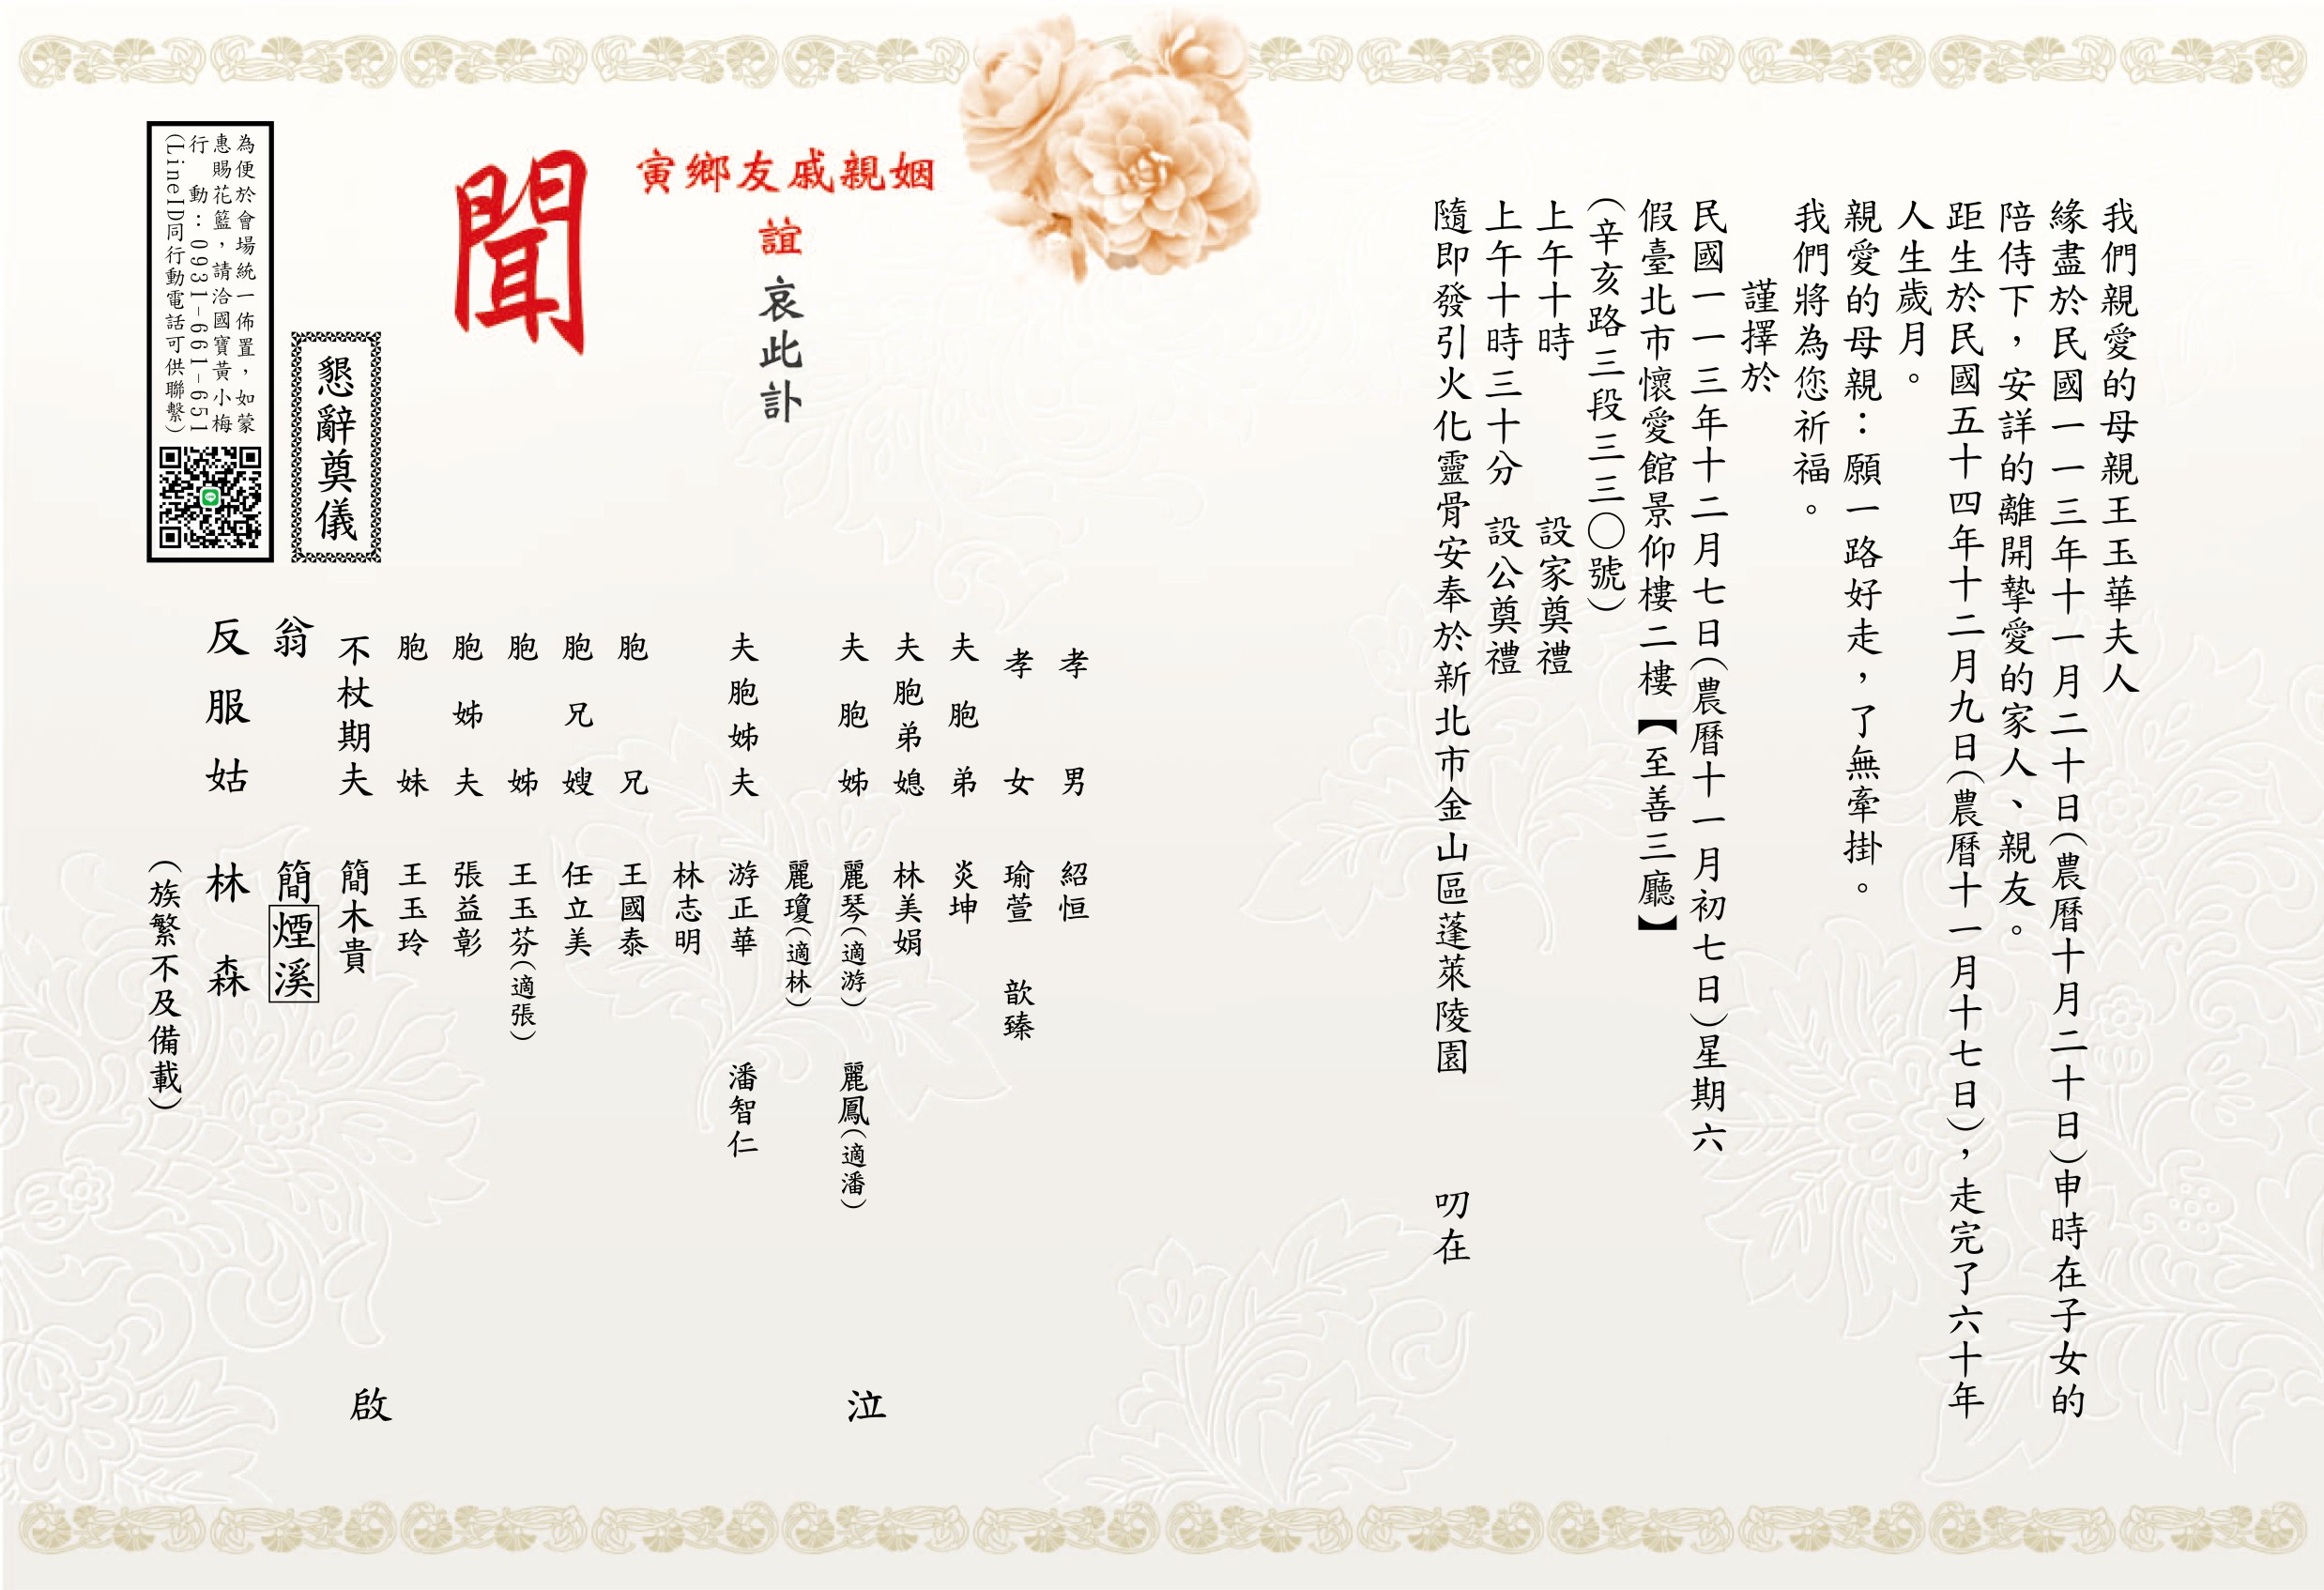 我們親愛的母親王玉華夫人
緣盡於民國一一三年十一月二十日(農曆十月二十日)申時在子女的
陪侍下，安詳的離開摯愛的家人、親友。
距生於民國五十四年十二月九日(農曆十一月十七日)，走完了六十年
人生歲月。
親愛的母親：願一路好走，了無牽掛。
我們將為您祈福。
謹擇於
民國一一三年十二月七日(農曆十一月初七日)星期六
假臺北市懷愛館景仰樓二樓【至善三廳】
(辛亥路三段三三〇號)
上午十時　設家奠禮
上午十時三十分　設公奠禮
隨即發引火化靈骨安奉於新北市金山區蓬萊陵園　叨在
姻親戚友鄉寅
誼
哀此訃
聞
孝男　紹恒
孝女　瑜萱　歆臻
夫胞弟　炎坤
夫胞弟媳　林美娟
夫胞姊　麗琴(適游)　麗鳳(適潘)
麗瓊(適林)
夫胞姊夫　游正華　潘智仁
林志明
胞兄　王國泰
胞兄嫂　任立美
胞姊　王玉芬(適張)
胞姊夫　張益彰
胞妹　王玉玲
不杖期夫　簡木貴
翁　簡煙溪
反服姑　林森
(族繁不及備載)
泣
啟
懇辭奠儀
為便於會場統一佈置，如蒙
惠賜花籃，請洽國寶黃小梅
行動：0931-661-651
(LineID同行動電話可供聯繫)